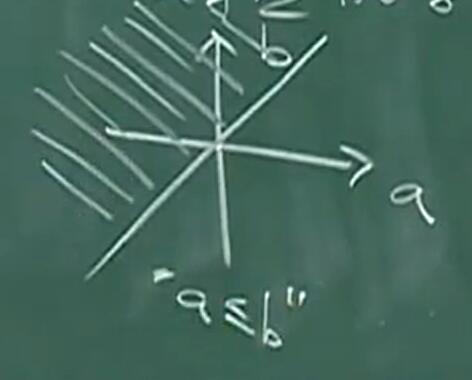 b
a
"a ≤ b"